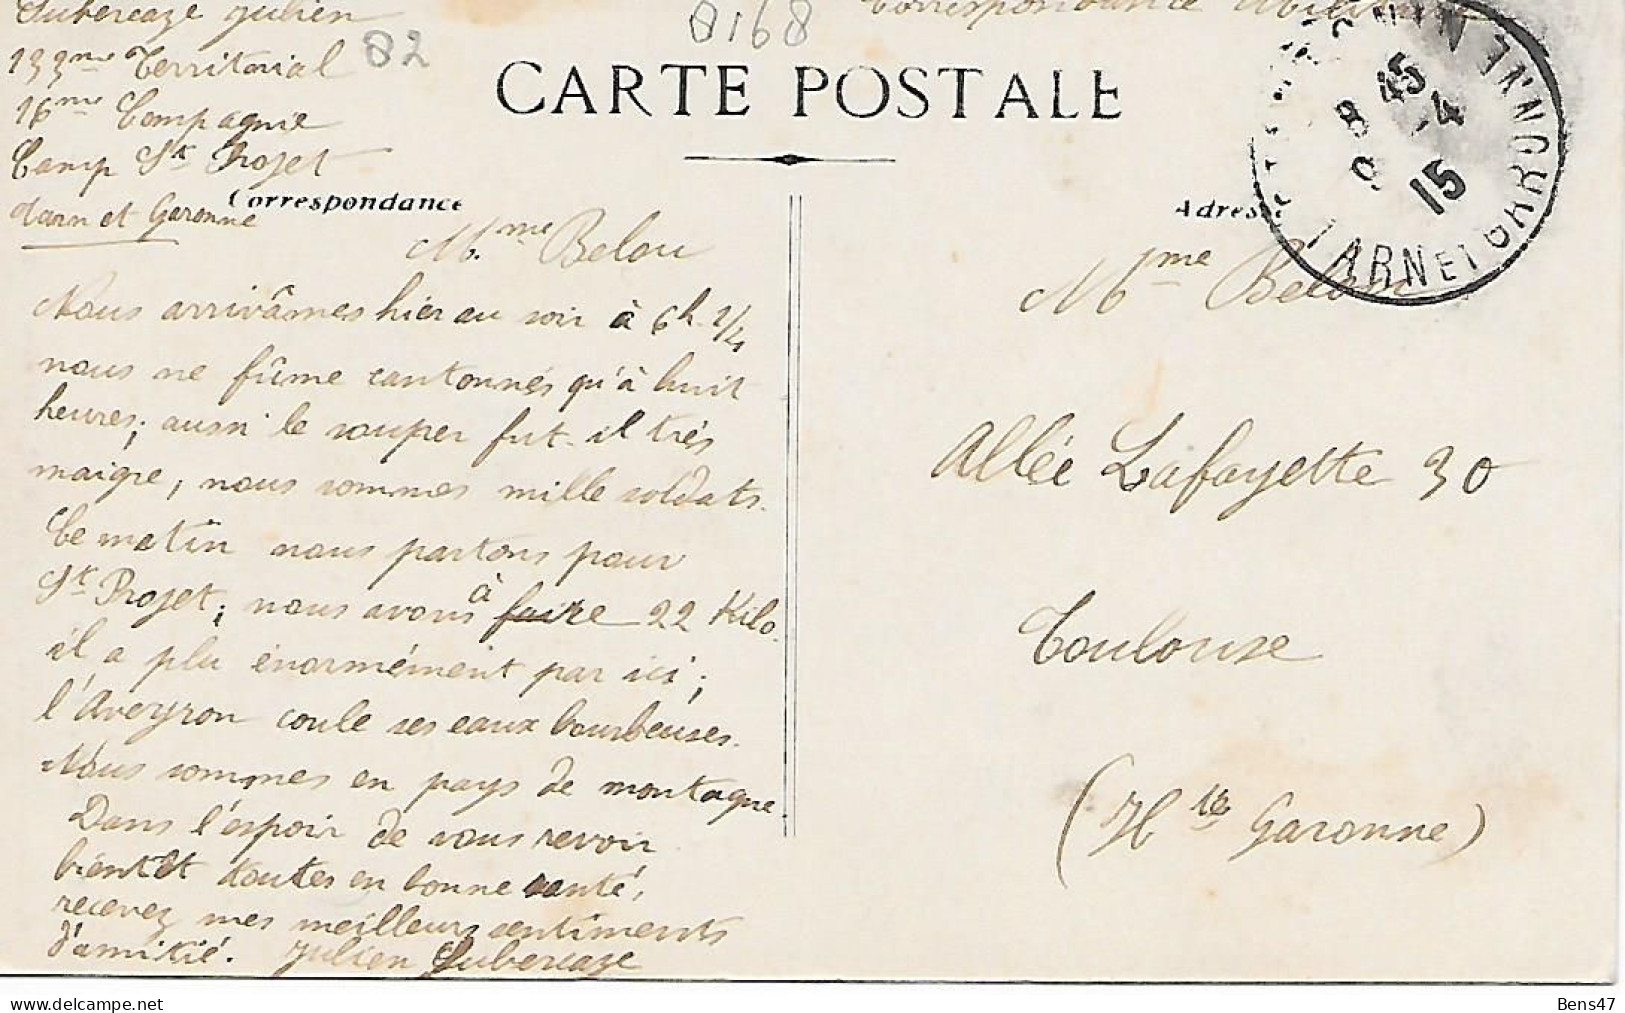 Dubercaze Julien
133me Territorial
16me Compagnie
Camp St Projet
tarn et Garonne
82
0168
Correspondance Militaire
CARTE POSTALE
Correspondance
Adresse
8 45
9 4
15
TARN ET GARONNE
Mme Belou
Nous arrivâmes hier au soir à 6h 1/4
nous ne fûme cantonnés qu'à huit
heures; aussi le souper fut-il très
maigre, nous sommes mille soldats.
Ce matin nous partons pour
St Projet; nous avons à faire 22 Kilo.
il a plu énormément par ici;
l'Aveyron coule ses eaux bourbeuses.
Nous sommes en pays de montagne
Dans l'espoir de vous revoir
bientôt toutes en bonne santé,
recevez mes meilleurs sentiments
d'amitié. Julien Dubercaze
Mme Belou
Allée Lafayette 30
Toulouse
(Hte Garonne)
Bens47